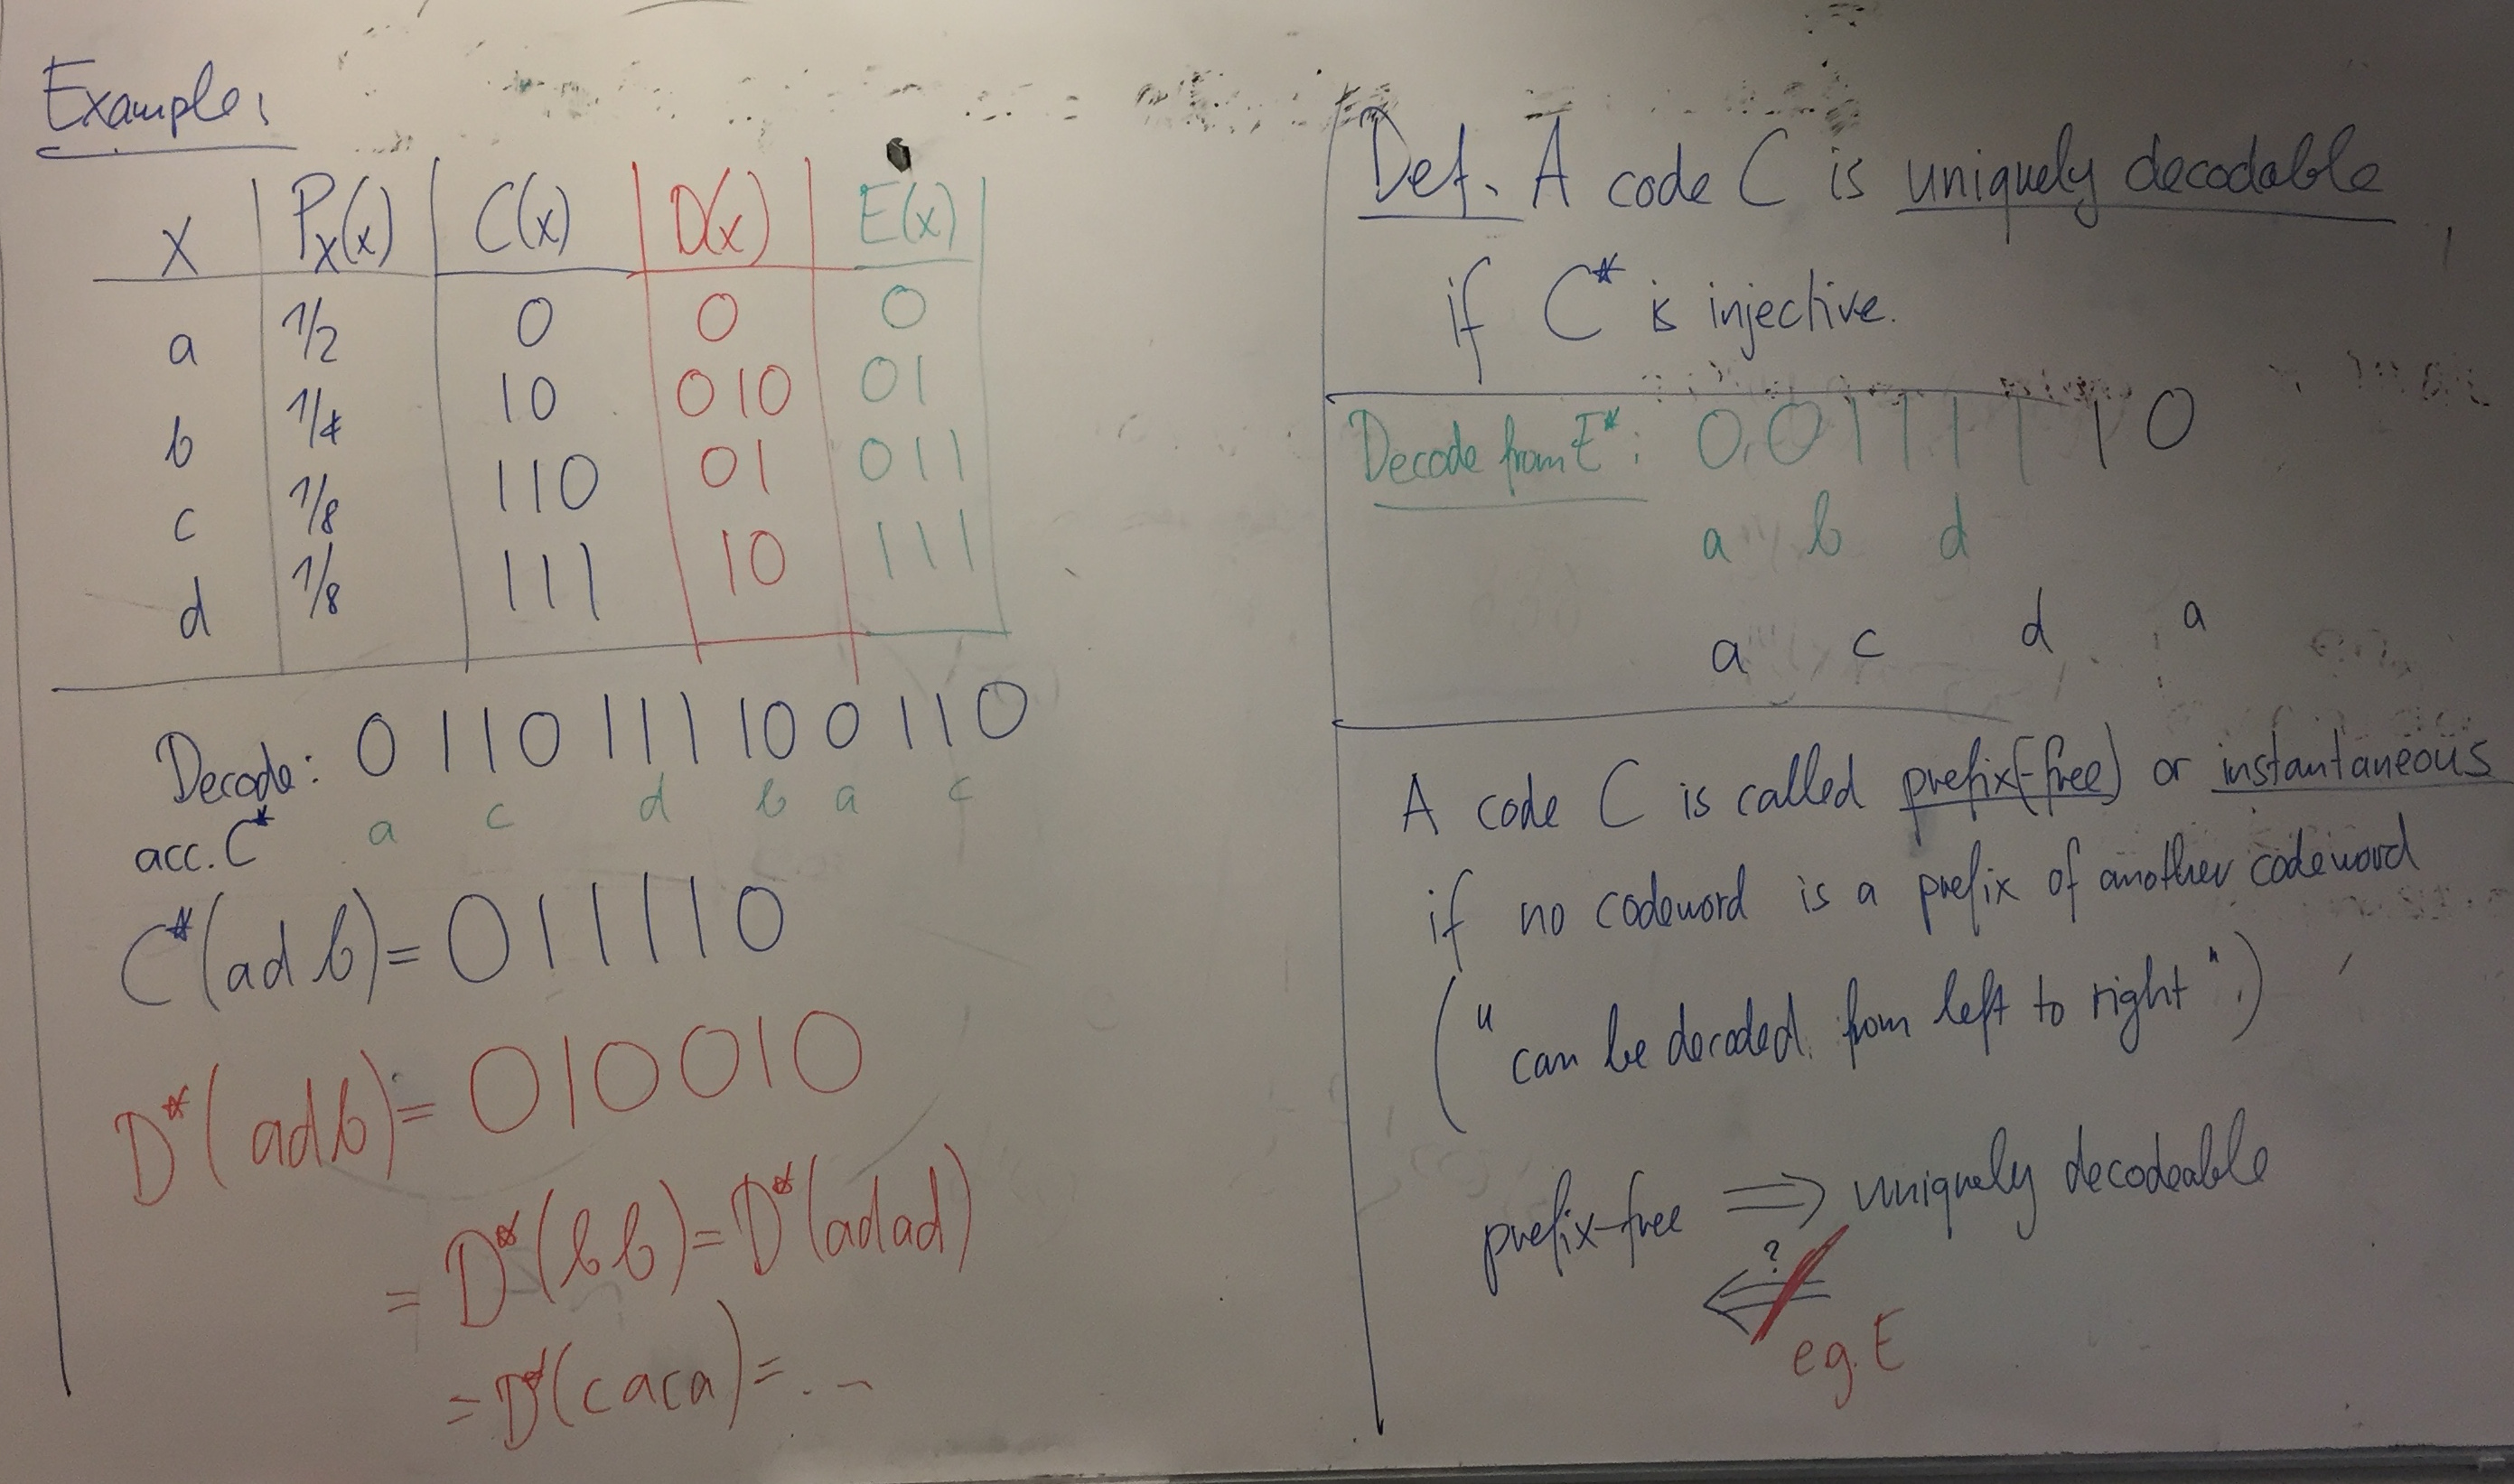 Example:
X | P_X(x) | C(x) | D(x) | E(x)
a | 1/2 | 0 | 0 | 0
b | 1/4 | 10 | 010 | 01
c | 1/8 | 110 | 01 | 011
d | 1/8 | 111 | 10 | 111
Decode: 0 110 111 10 0 110
acc. C* a c d b a c
C*(adb) = 011110
D*(adb) = 010010
= D*(bb) = D*(adad)
= D*(caca) = ...
Def. A code C is uniquely decodable
if C* is injective.
Decode from E*: 0 0 1 1 1 1 1 0
a b d
a c d a
A code C is called prefix(-free) or instantaneous
if no codeword is a prefix of another codeword
("can be decoded from left to right".)
prefix-free ⟹ uniquely decodeable
⟸ ?
eg. E